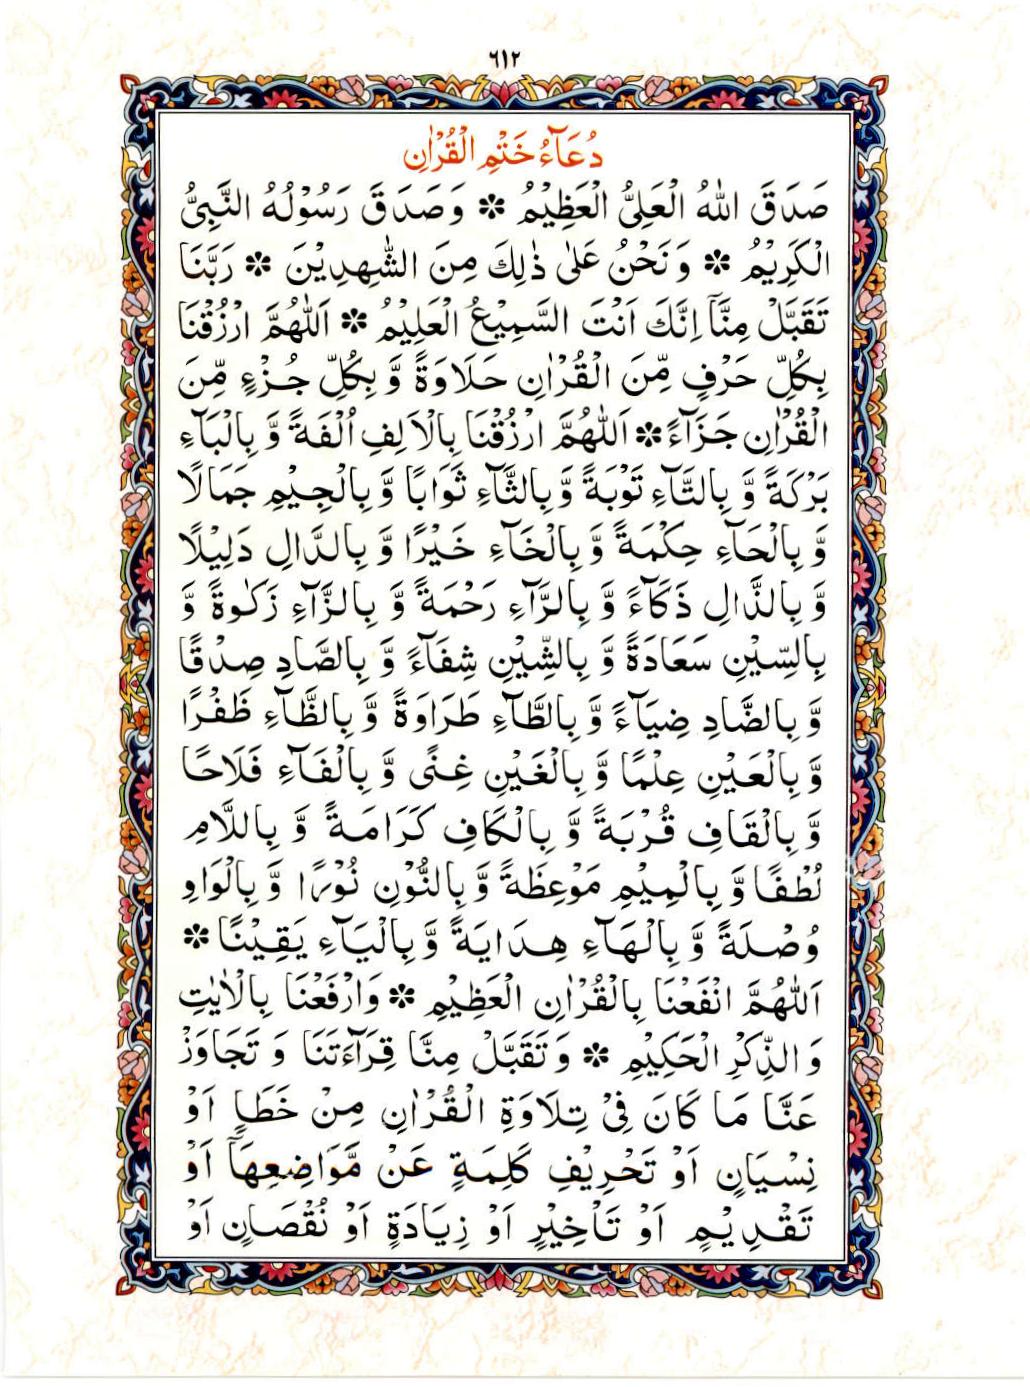 ٦١٢
دُعَآءُ خَتْمِ الْقُرْاٰنِ
صَدَقَ اللّٰهُ الْعَلِىُّ الْعَظِيْمُ ❇ وَصَدَقَ رَسُوْلُهُ النَّبِىُّ
الْكَرِيْمُ ❇ وَنَحْنُ عَلٰى ذٰلِكَ مِنَ الشّٰهِدِيْنَ ❇ رَبَّنَا
تَقَبَّلْ مِنَّآ اِنَّكَ اَنْتَ السَّمِيْعُ الْعَلِيْمُ ❇ اَللّٰهُمَّ ارْزُقْنَا
بِكُلِّ حَرْفٍ مِّنَ الْقُرْاٰنِ حَلَاوَةً وَّ بِكُلِّ جُزْءٍ مِّنَ
الْقُرْاٰنِ جَزَآءً ❇ اَللّٰهُمَّ ارْزُقْنَا بِالْاَلِفِ اُلْفَةً وَّ بِالْبَآءِ
بَرَكَةً وَّ بِالتَّآءِ تَوْبَةً وَّ بِالثَّآءِ ثَوَابًا وَّ بِالْجِيْمِ جَمَالًا
وَّ بِالْحَآءِ حِكْمَةً وَّ بِالْخَآءِ خَيْرًا وَّ بِالدَّالِ دَلِيْلًا
وَّ بِالذَّالِ ذَكَآءً وَّ بِالرَّآءِ رَحْمَةً وَّ بِالزَّآءِ زَكٰوةً وَّ
بِالسِّيْنِ سَعَادَةً وَّ بِالشِّيْنِ شِفَآءً وَّ بِالصَّادِ صِدْقًا
وَّ بِالضَّادِ ضِيَآءً وَّ بِالطَّآءِ طَرَاوَةً وَّ بِالظَّآءِ ظَفْرًا
وَّ بِالْعَيْنِ عِلْمًا وَّ بِالْغَيْنِ غِنًى وَّ بِالْفَآءِ فَلَاحًا
وَّ بِالْقَافِ قُرْبَةً وَّ بِالْكَافِ كَرَامَةً وَّ بِاللَّامِ
لُطْفًا وَّ بِالْمِيْمِ مَوْعِظَةً وَّ بِالنُّوْنِ نُوْرًا وَّ بِالْوَاوِ
وُصْلَةً وَّ بِالْهَآءِ هِدَايَةً وَّ بِالْيَآءِ يَقِيْنًا ❇
اَللّٰهُمَّ انْفَعْنَا بِالْقُرْاٰنِ الْعَظِيْمِ ❇ وَارْفَعْنَا بِالْاٰيٰتِ
وَ الذِّكْرِ الْحَكِيْمِ ❇ وَ تَقَبَّلْ مِنَّا قِرَآءَتَنَا وَ تَجَاوَزْ
عَنَّا مَا كَانَ فِىْ تِلَاوَةِ الْقُرْاٰنِ مِنْ خَطَاٍ اَوْ
نِسْيَانٍ اَوْ تَحْرِيْفِ كَلِمَةٍ عَنْ مَّوَاضِعِهَآ اَوْ
تَقْدِيْمٍ اَوْ تَاْخِيْرٍ اَوْ زِيَادَةٍ اَوْ نُقْصَانٍ اَوْ